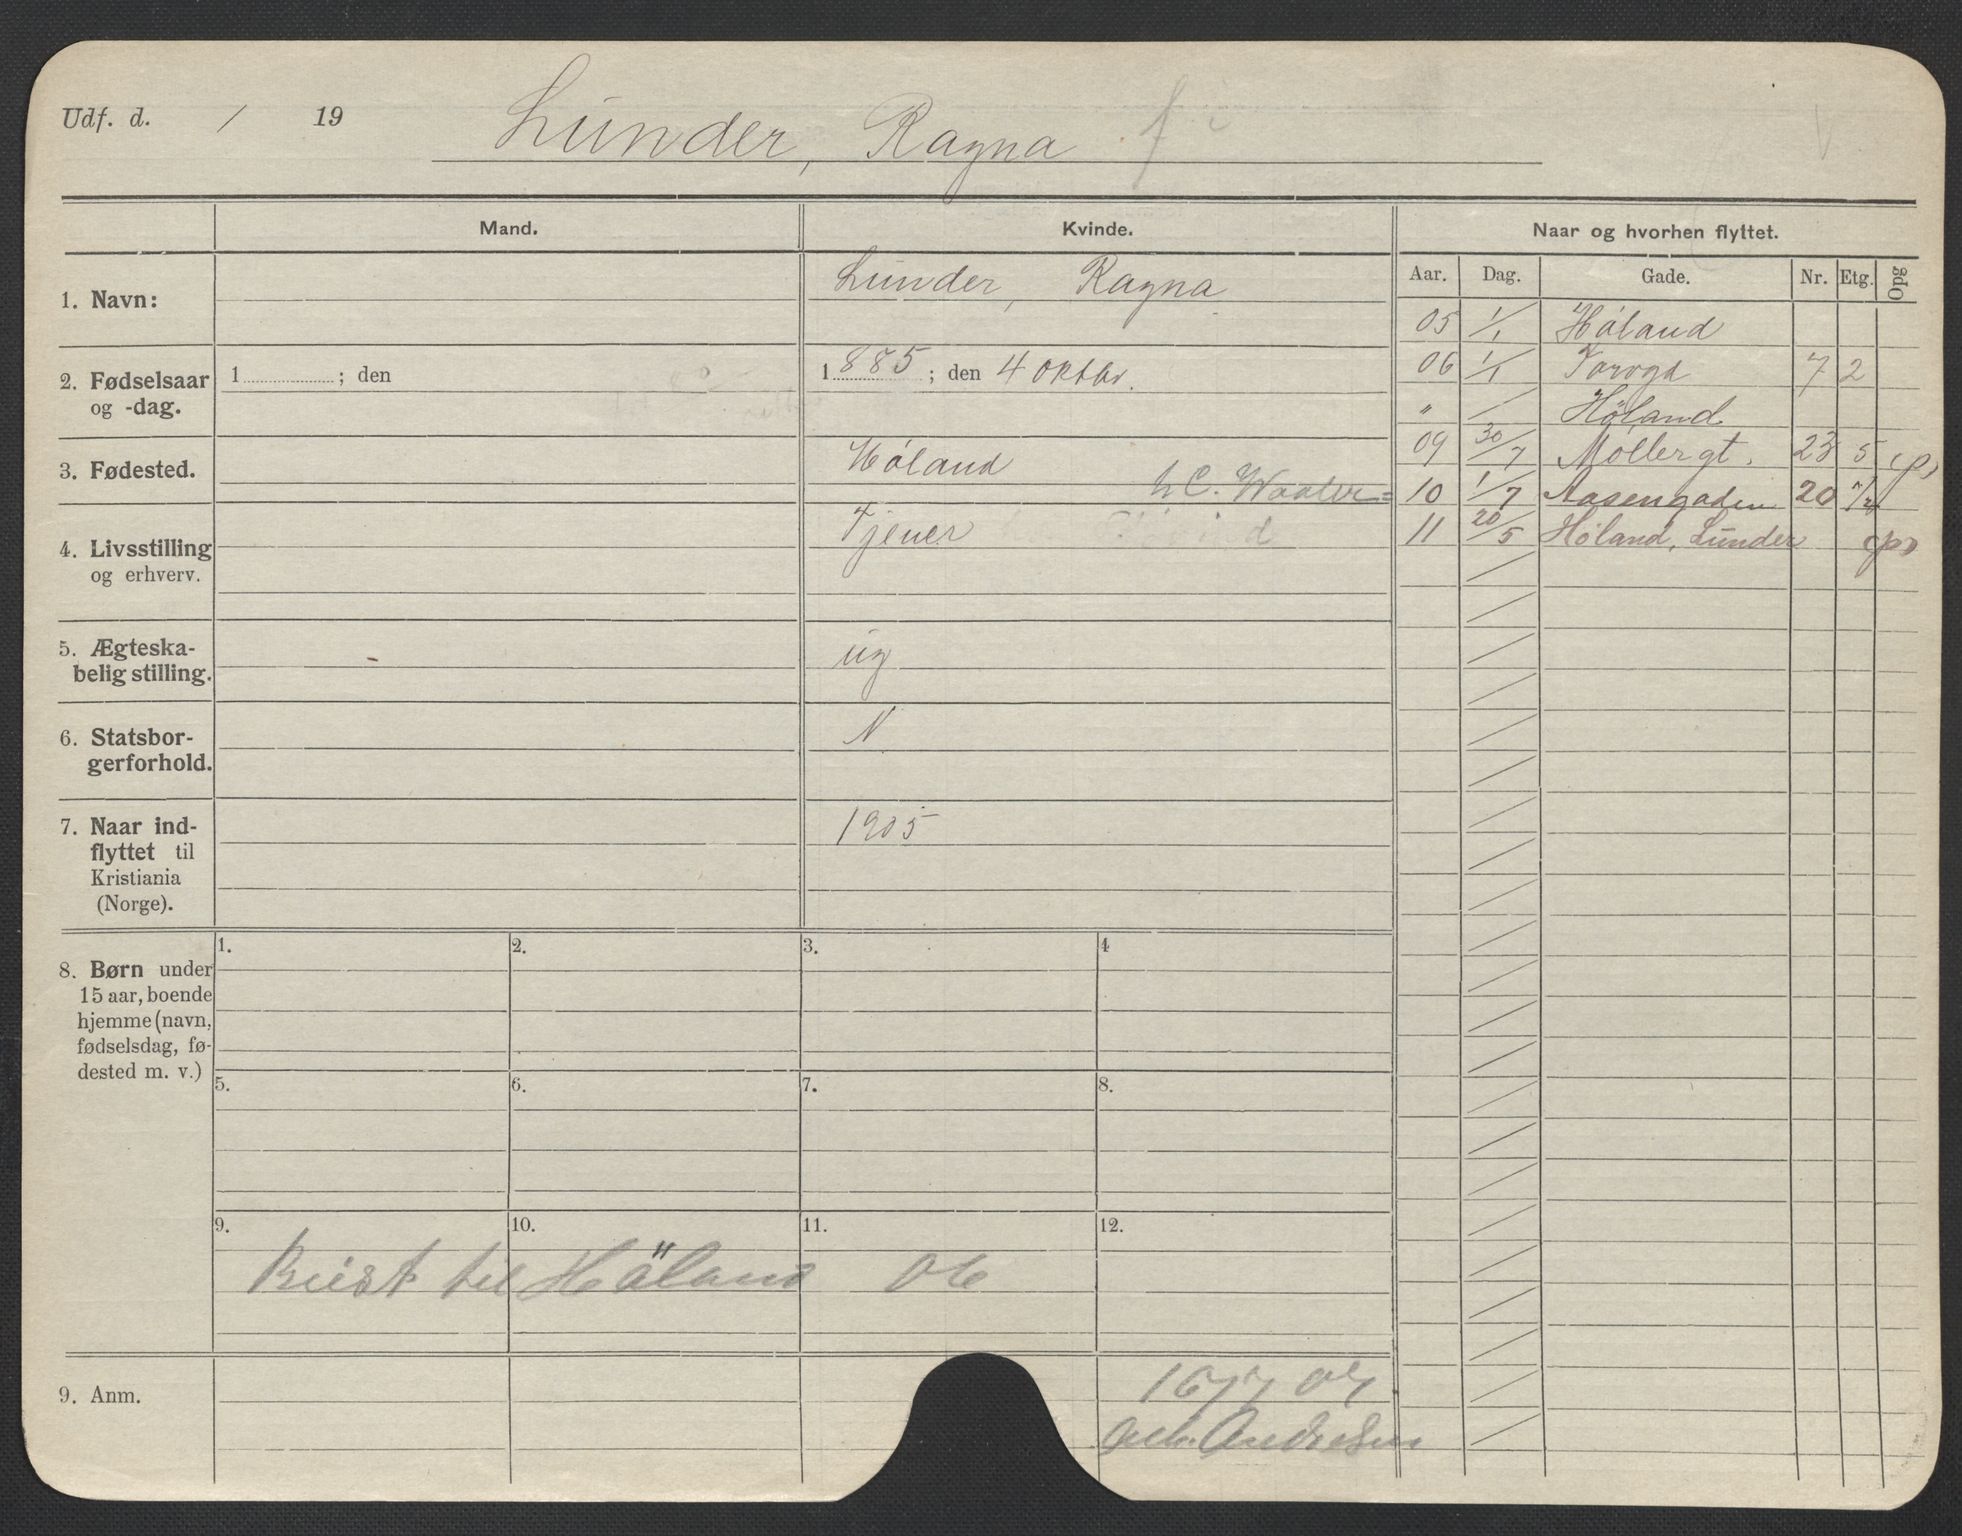 Udf. d. / 19
Lunder, Ragna
Mand. Kvinde. Naar og hvorhen flyttet.
Aar. Dag. Gade. Nr. Etg. Opg
1. Navn: Lunder, Ragna
2. Fødselsaar og -dag.
1 ; den
1885 ; den 4 oktbr.
3. Fødested. Høland
h C. Waaler=
4. Livsstilling og erhverv. Tjener
5. Ægteska-
belig stilling. ug
6. Statsbor-
gerforhold. N
7. Naar ind-
flyttet til
Kristiania
(Norge). 1905
05 1/1 Høland
06 1/1 Torvgd 7 2
" / Høland
09 30/7 Møllergt. 23 5 (p)
10 1/7 Aasengaden 20
11 20/5 Høland, Lunder (p)
8. Børn under
15 aar, boende
hjemme (navn,
fødselsdag, fø-
dested m. v.)
1. 2. 3. 4
5. 6. 7. 8.
9. 10. 11. 12.
Reist til Høland 06
9. Anm.
Andresen